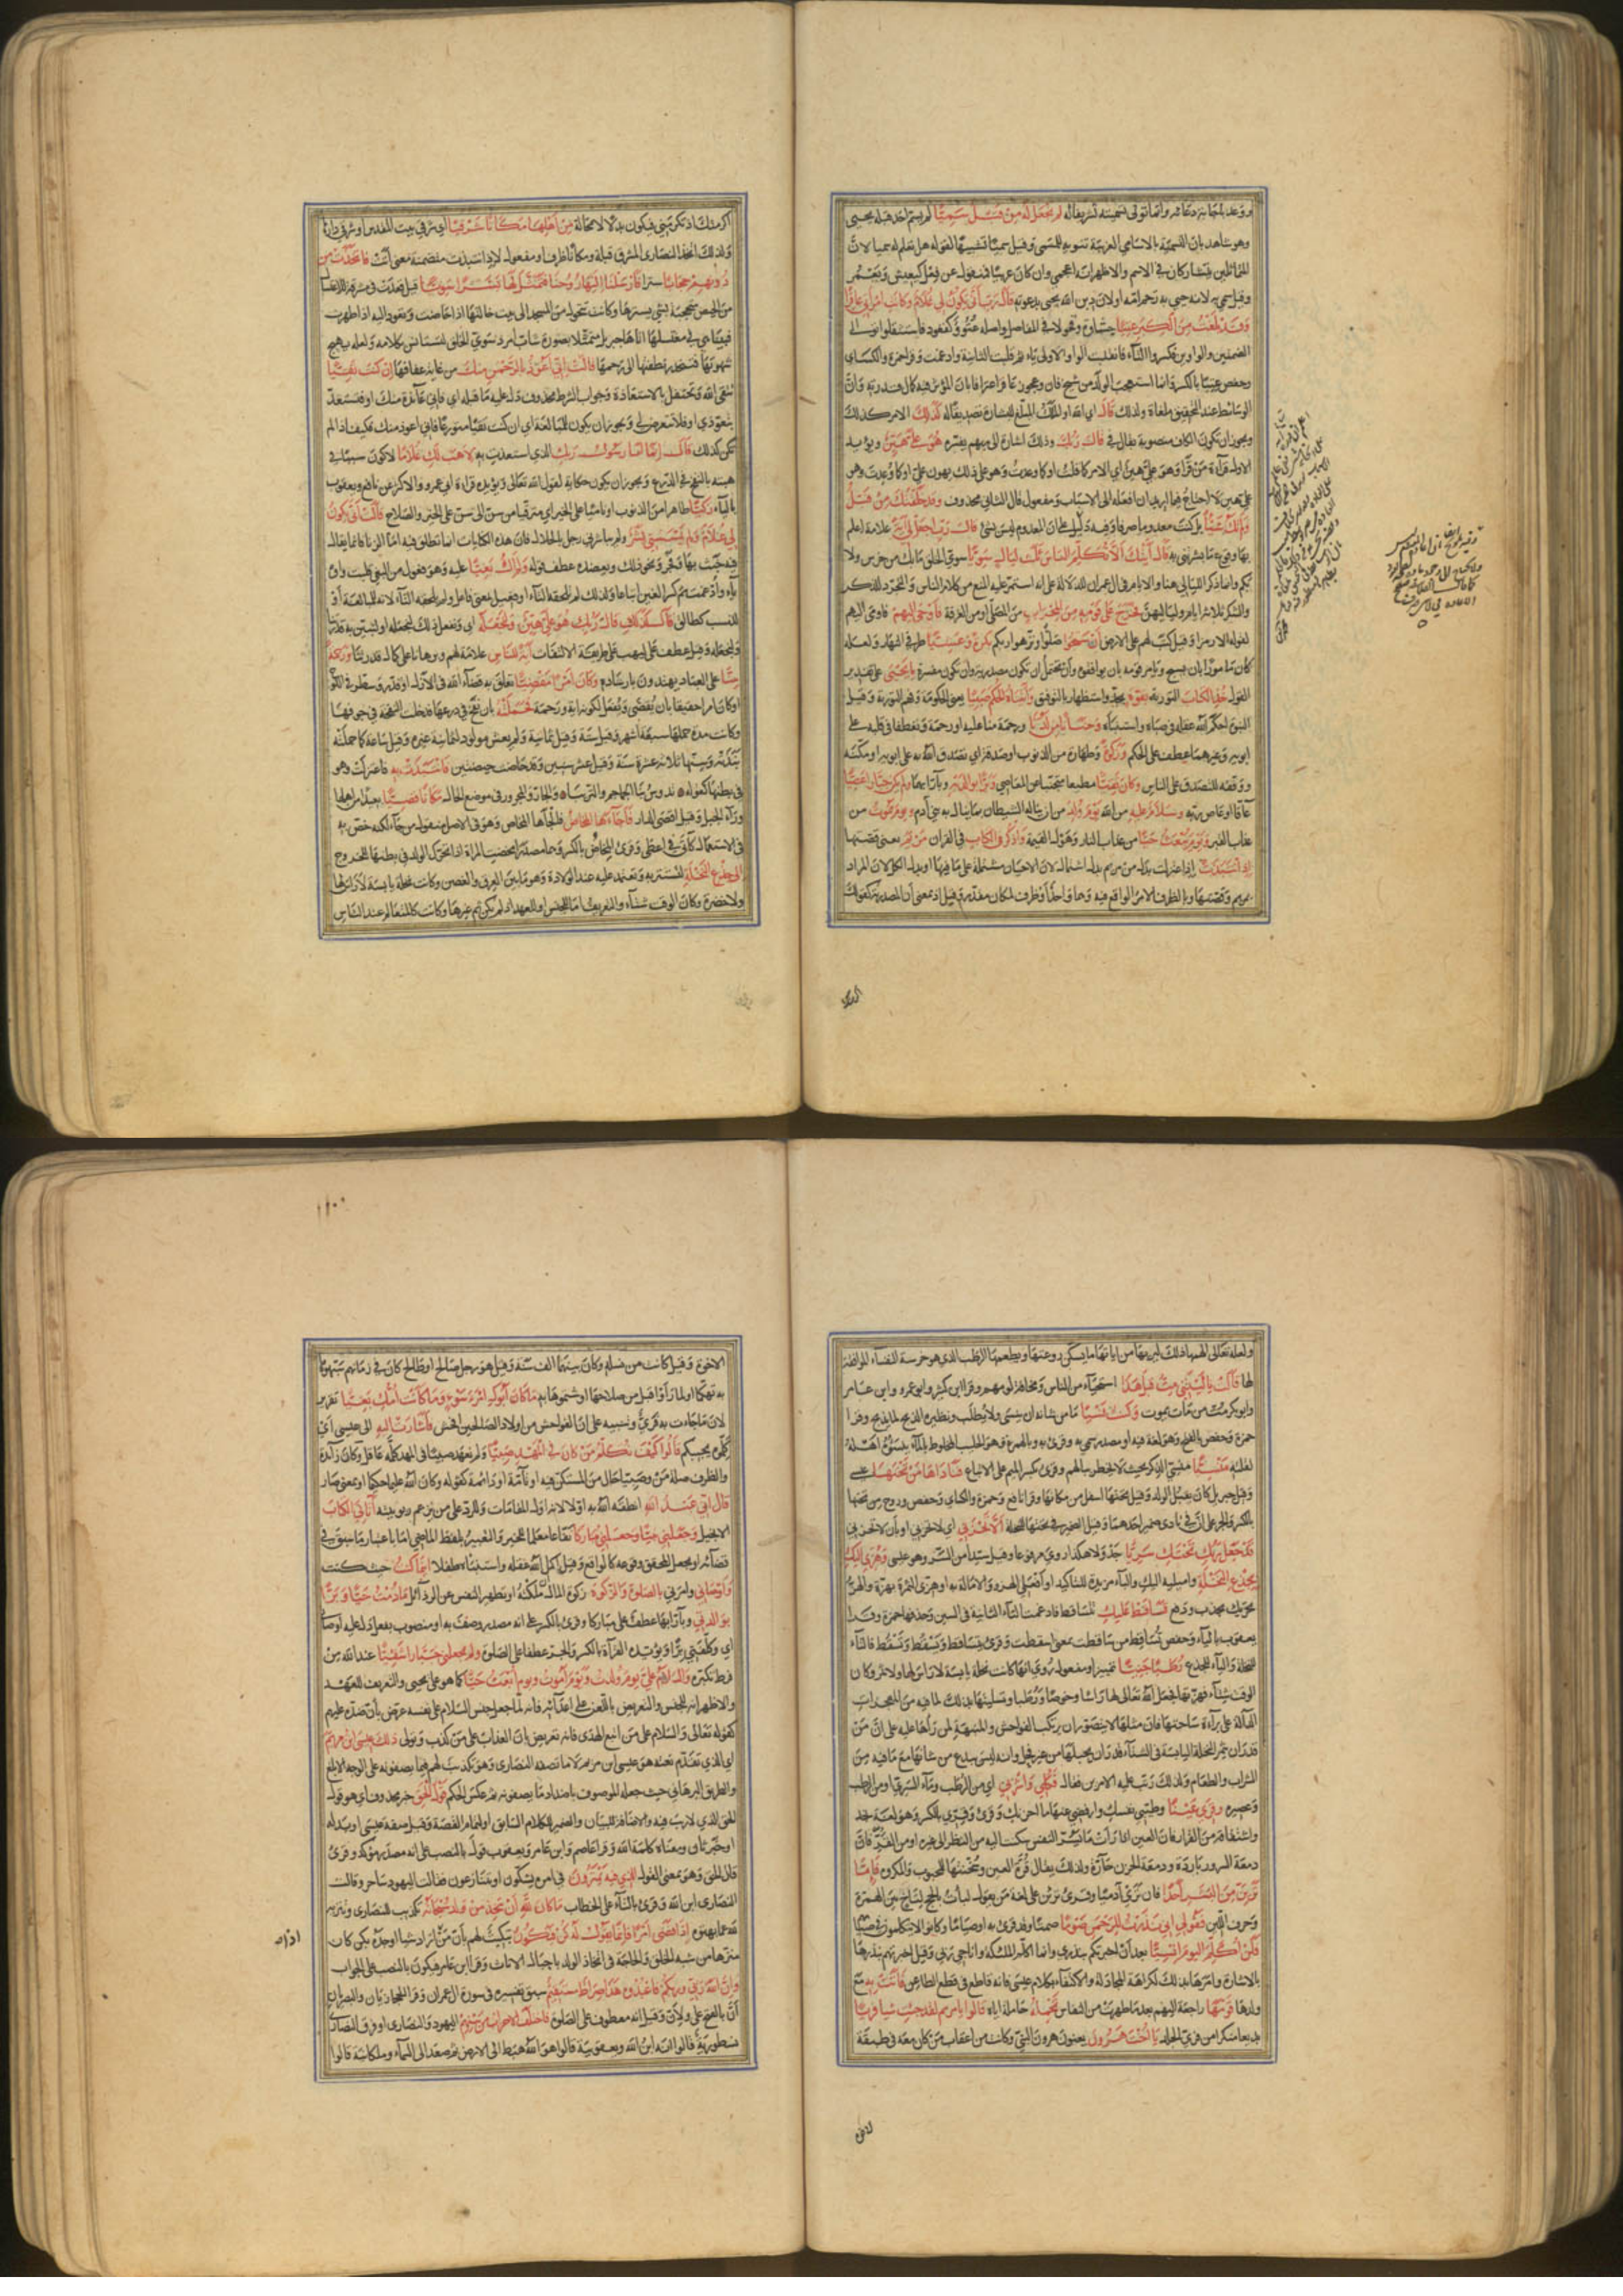 ووعد باجابة دعائه وانما تولى تسميته تشريفا له لم نجعل له من قبل سميا لم يسم احد قبله بيحيى
وهو شاهد بان التسمية بالاسامي الغريبة تنويه للمسمى وقيل سميا شبيها لقوله هل تعلم له سميا لان
المتماثلين يتشاركان في الاسم والاظهر انه اعجمي وان كان عربيا فمنقول عن فعل كيعيش ويعمر
وقيل سمي به لانه حيي به رحم امه او لان دين الله يحيى بدعوته قال رب انى يكون لي غلام وكانت امراتي عاقرا
وقد بلغت من الكبر عتيا جساوة وقحولا في المفاصل واصله عتوو كقعود فاستثقلوا توالي
الضمتين والواوين فكسروا التاء فانقلبت الواو الاولى ياء ثم قلبت الثانية وادغمت وقرا حمزة والكسائي
وحفص عتيا بالكسر وانما استعجب الولد من شيخ فان وعجوز عاقر اعترافا بان المؤثر فيه كمال قدرته وان
الوسائط عند التحقيق ملغاة ولذلك قال اي الله او الملك المبلغ للبشارة تصديقا له كذلك الامر كذلك
ويجوز ان تكون الكاف منصوبة بقال في قال ربك وذلك اشارة الى مبهم يفسره هو علي هين ويؤيد
الاول قراءة من قرا وهو علي هين اي الامر كما قلت او كما وعدت وهو على ذلك يهون علي او كما وعدت وهو
علي هين لا احتاج فيما اريد ان افعله الى الاسباب ومفعول قال الثاني محذوف وقد خلقتك من قبل
ولم تك شيئا بل كنت معدوما صرفا وفيه دليل على ان المعدوم ليس بشئ قال رب اجعل لي اية علامة اعلم
بها وقوع ما بشرتني به قال ايتك الا تكلم الناس ثلث ليال سويا سوي الخلق ما بك من خرس ولا
بكم وانما ذكر الليالي هنا والايام في ال عمران للدلالة على انه استمر عليه المنع من كلام الناس والتجرد للذكر
والشكر ثلاثة ايام ولياليهن فخرج على قومه من المحراب من المصلى او من الغرفة فاوحى اليهم فاومى اليهم
لقوله الا رمزا وقيل كتب لهم على الارض ان سبحوا صلوا او نزهوا ربكم بكرة وعشيا طرفي النهار ولعله
كان مامورا بان يسبح ويامر قومه بان يوافقوه وان يحتمل ان تكون مصدرية وان تكون مفسرة يا يحيى على تقدير
القول خذ الكتاب التورية بقوة بجد واستظهار بالتوفيق واتيناه الحكم صبيا يعني الحكمة وفهم التورية وقيل
النبوة احكم الله عقله في صباه واستنباه وحنانا من لدنا ورحمة منا عليه او رحمة وتعطفا في قلبه على
ابويه وغيرهما عطف على الحكم وزكوة وطهارة من الذنوب او صدقة اي تصدق الله به على ابويه او مكنه
ووفقه للتصدق على الناس وكان تقيا مطيعا متجنبا عن المعاصي وبرا بوالديه وبارا بهما ولم يكن جبارا عصيا
عاقا او عاصي ربه وسلام عليه من الله يوم ولد من ان يناله الشيطان بما ينال به بني ادم ويوم يموت من
عذاب القبر ويوم يبعث حيا من عذاب النار وهول القيمة واذكر في الكتاب في القران مريم يعني قصتها
اذ انتبذت اذ اعتزلت بدل من مريم بدل اشتمال لان الاحيان مشتملة على ما فيها او بدل الكل لان المراد
بمريم وقصتها وبالظرف الامر الواقع فيه وهما واحد او ظرف لمكان مقدر وقيل اذ بمعنى ان المصدرية كقولك
اكرمتك اذ لم تكرمني فيكون بدلا لا محالة من اهلها مكانا شرقيا اي شرقي بيت المقدس او شرقي دارها
ولذلك اتخذ النصارى المشرق قبلة ومكانا ظرف او مفعول لان انتبذت متضمنة معنى اتت فاتخذت من
دونهم حجابا سترا فارسلنا اليها روحنا فتمثل لها بشرا سويا قيل قعدت في مشرقة للاغتسال
من الحيض محتجبة بشئ يسترها وكانت تتحول من المسجد الى بيت خالتها اذا حاضت وتعود اليه اذا طهرت
فبينما هي في مغتسلها اتاها جبريل متمثلا بصورة شاب امرد سوي الخلق لتستانس بكلامه ولعله يهيج
شهوتها فتنحدر نطفتها الى رحمها قالت اني اعوذ بالرحمن منك من غاية عفافها ان كنت تقيا
تتقي الله وتحتفل بالاستعاذة وجواب الشرط محذوف دل عليه ما قبله اي فاني عائذة منك او فتتعظ
بتعوذي او فلا تتعرض لي ويجوز ان يكون للمبالغة اي ان كنت تقيا متورعا فاني اعوذ منك فكيف اذا لم
تكن كذلك قال انما انا رسول ربك الذي استعذت به لاهب لك غلاما لاكون سببا في
هبته بالنفخ في الدرع ويجوز ان يكون حكاية لقول الله تعالى ويؤيده قراءة ابي عمرو والاكثر عن نافع ويعقوب
بالياء زكيا طاهرا من الذنوب او ناميا على الخير اي مترقيا من سن الى سن على الخير والصلاح قالت انى يكون
لي غلام ولم يمسسني بشر ولم يباشرني رجل بالحلال فان هذه الكنايات انما تطلق فيه اما الزنا فانما يقال
فيه خبث بها وفجر ونحو ذلك ويعضده عطف قوله ولم اك بغيا عليه وهو فعول من البغي قلبت واوه
ياء وادغمت ثم كسر الغين اتباعا ولذلك لم تلحقه التاء او فعيل بمعنى فاعل ولم تلحقه التاء لانه للمبالغة او
للنسب كطالق قال كذلك قال ربك هو علي هين ولنجعله اي ونفعل ذلك لنجعله او لنبين به قدرتنا
ولنجعله وقيل عطف على ليهب على طريقة الالتفات اية للناس علامة لهم وبرهانا على كمال قدرتنا ورحمة
منا على العباد يهتدون بارشاده وكان امرا مقضيا تعلق به قضاء الله في الازل او قدر وسطر في اللوح
او كان امرا حقيقا بان يقضى ويفعل لكونه اية ورحمة فحملته بان نفخ في درعها فدخلت النفخة في جوفها
وكانت مدة حملها سبعة اشهر وقيل ستة وقيل ثمانية ولم يعش مولود لثمانية غيره وقيل ساعة كما حملته
نبذته وسنها ثلاث عشرة سنة وقيل عشر سنين وقد حاضت حيضتين فانتبذت به فاعتزلت وهو
في بطنها كقوله تدوس بنا الجماجم والتريبا والجار والمجرور في موضع الحال مكانا قصيا بعيدا من اهلها
وراء الجبل وقيل اقصى الدار فاجاءها المخاض فالجاها المخاض وهو في الاصل منقول من جاء لكنه خص به
في الاستعمال كاتى في اعطى وقرئ المخاض بالكسر وهما مصدرا مخضت المراة اذا تحرك الولد في بطنها للخروج
الى جذع النخلة لتستتر به وتعتمد عليه عند الولادة وهو ما بين العرق والغصن وكانت نخلة يابسة لا راس لها
ولا خضرة وكان الوقت شتاء والتعريف اما للجنس او للعهد اذ لم يكن ثم غيرها وكانت كالمتعالم عند الناس
ولعله تعالى الهمها ذلك ليريها من اياتها ما يسكن روعتها ويطعمها الرطب الذي هو خرسة النفساء الموافقة
لها قالت يا ليتني مت قبل هذا استحياء من الناس ومخافة لومهم وقرا ابن كثير وابو عمرو وابن عامر
وابو بكر مت من مات يموت وكنت نسيا ما من شانه ان ينسى ولا يطلب ونظيره الذبح لما يذبح وقرا
حمزة وحفص بالفتح وهو لغة فيه او مصدر سمي به وقرئ به وبالهمزة وهو الحليب المخلوط بالماء ينسؤه اهله
لقلته منسيا منسي الذكر بحيث لا يخطر ببالهم وقرئ بكسر الميم على الاتباع فناداها من تحتها عيسى
وقيل جبريل كان يقبل الولد وقيل تحتها اسفل من مكانها وقرا نافع وحمزة والكسائي وحفص وروح من تحتها
بالكسر والجر على ان في نادى ضمير احدهما وقيل الضمير في تحتها للنخلة الا تحزني اي لا تحزني او بان لا تحزني
قد جعل ربك تحتك سريا جدولا هكذا روي مرفوعا وقيل سيدا من السرو وهو عيسى وهزي اليك
بجذع النخلة واميليه اليك والباء مزيدة للتاكيد او افعلي الهز والامالة به او هزي الثمرة بهزه والهز
تحريك بجذب ودفع تساقط عليك تتساقط فادغمت التاء الثانية في السين وحذفها حمزة وقرا
يعقوب بالياء وحفص تساقط من ساقطت بمعنى اسقطت وقرئ تتساقط وتسقط ويسقط فالتاء
للنخلة والياء للجذع رطبا جنيا تمييز او مفعول روي انها كانت نخلة يابسة لا راس لها ولا ثمر وكان
الوقت شتاء فهزتها فجعل الله تعالى لها راسا وخوصا ورطبا وتسليتها بذلك لما فيه من المعجزات
الدالة على براءة ساحتها فان مثلها لا يتصور ان يرتكب الفواحش والمنبهة لمن راها عليه على ان من
قدر ان يثمر النخلة اليابسة في الشتاء قدر ان يحبلها من غير فحل وانه ليس ببدع من شانها مع ما فيه من
الشراب والطعام ولذلك رتب عليه الامرين فقال فكلي واشربي اي من الرطب وماء السري او من الرطب
وعصيره وقري عينا وطيبي نفسك وارفضي عنها ما احزنك وقرئ وقري بالكسر وهو لغة نجد
واشتقاقه من القرار فان العين اذا رات ما يسر النفس سكنت اليه من النظر الى غيره او من القر فان
دمعة السرور باردة ودمعة الحزن حارة ولذلك يقال قرة العين وسخنتها للمحبوب والمكروه فاما
ترين من البشر احدا فان تري ادميا وقرئ ترئن على لغة من يقول لبات بالحج لتاخ بين الهمزة
وحرف اللين فقولي اني نذرت للرحمن صوما صمتا وقد قرئ به او صياما وكانوا لا يتكلمون في صيامهم
فلن اكلم اليوم انسيا بعد ان اخبرتكم بنذري وانما اكلم الملئكة واناجي ربي وقيل اخبرتهم بنذرها
بالاشارة وامرها بذلك لكراهة المجادلة والاكتفاء بكلام عيسى فانه قاطع في قطع الطاعن فاتت به مع
ولدها قومها راجعة اليهم بعد ما طهرت من النفاس تحمله حاملة اياه قالوا يا مريم لقد جئت شيئا فريا
بديعا منكرا من فري الجلد يا اخت هرون يعنون هرون النبي وكانت من اعقاب من كان معه في طبقة
الاخوة وقيل كانت من نسله وكان بينهما الف سنة وقيل هو رجل صالح او طالح كان في زمانهم شبهوها
به تهكما او لما راوا قبل من صلاحها او شتموها به ما كان ابوك امرا سوء وما كانت امك بغيا تقرير
لان ما جاءت به فري وتنبيه على ان الفواحش من اولاد الصالحين افحش فاشارت اليه الى عيسى اي
كلموه ليجيبكم قالوا كيف نكلم من كان في المهد صبيا ولم نعهد صبيا في المهد كلمه عاقل وكان زائدة
والظرف صلة من وصبيا حال من المستكن فيه او تامة او دائمة كقوله وكان الله عليما حكيما او بمعنى صار
قال اني عبد الله انطقه الله به اولا لانه اول المقامات وللرد على من يزعم ربوبيته اتاني الكتاب
الانجيل وجعلني نبيا وجعلني مباركا نفاعا معلما للخير والتعبير بلفظ الماضي اما باعتبار ما سبق في
قضائه او بجعل المحقق وقوعه كالواقع وقيل اكمل الله عقله واستنباه طفلا اينما كنت حيث كنت
واوصاني وامرني بالصلوة والزكوة زكوة المال ان ملكته او تطهير النفس عن الرذائل ما دمت حيا وبرا
بوالدتي وبارا بها عطف على مباركا وقرئ بالكسر على انه مصدر وصف به او منصوب بفعل دل عليه اوصاني
اي وكلفني برا ويؤيده القراءة بالكسر والجر عطفا على الصلوة ولم يجعلني جبارا شقيا عند الله من
فرط تكبره والسلام علي يوم ولدت ويوم اموت ويوم ابعث حيا كما هو على يحيى والتعريف للعهد
والاظهر انه للجنس والتعريض باللعن على اعدائه فانه لما جعل جنس السلام على نفسه عرض بان ضده عليهم
كقوله تعالى والسلام على من اتبع الهدى فانه تعريض بان العذاب على من كذب وتولى ذلك عيسى ابن مريم
اي الذي تقدم نعته هو عيسى ابن مريم لا ما تصفه النصارى وهو تكذيب لهم فيما يصفونه على الوجه الابلغ
والطريق البرهاني حيث جعله الموصوف باضداد ما يصفونه ثم عكس الحكم قول الحق خبر محذوف اي هو قول
الحق الذي لا ريب فيه والاضافة للبيان والضمير للكلام السابق او لتمام القصة وقيل صفة عيسى او بدله
او خبر ثان ومعناه كلمة الله وقرا عاصم وابن عامر ويعقوب قول بالنصب على انه مصدر مؤكد وقرئ
قال الحق وهو بمعنى القول الذي فيه يمترون في امره يشكون او يتنازعون فقالت اليهود ساحر وقالت
النصارى ابن الله وقرئ بالتاء على الخطاب ما كان لله ان يتخذ من ولد سبحانه تكذيب للنصارى وتنزيه
لله عما بهتوه اذا قضى امرا فانما يقول له كن فيكون تبكيت لهم بان من اذا اراد شيئا اوجده بكن كان
منزها من شبه الخلق والحاجة في اتخاذ الولد باحبال الاناث وقرا ابن عامر فيكون بالنصب على الجواب
وان الله ربي وربكم فاعبدوه هذا صراط مستقيم سبق تفسيره في سورة ال عمران وقرا الحجازيان والبصريان
ان بالفتح على ولان وقيل انه معطوف على الصلوة فاختلف الاحزاب من بينهم اليهود والنصارى او فرق النصارى
نسطورية قالوا انه ابن الله ويعقوبية قالوا هو الله هبط الى الارض ثم صعد الى السماء وملكائية قالوا